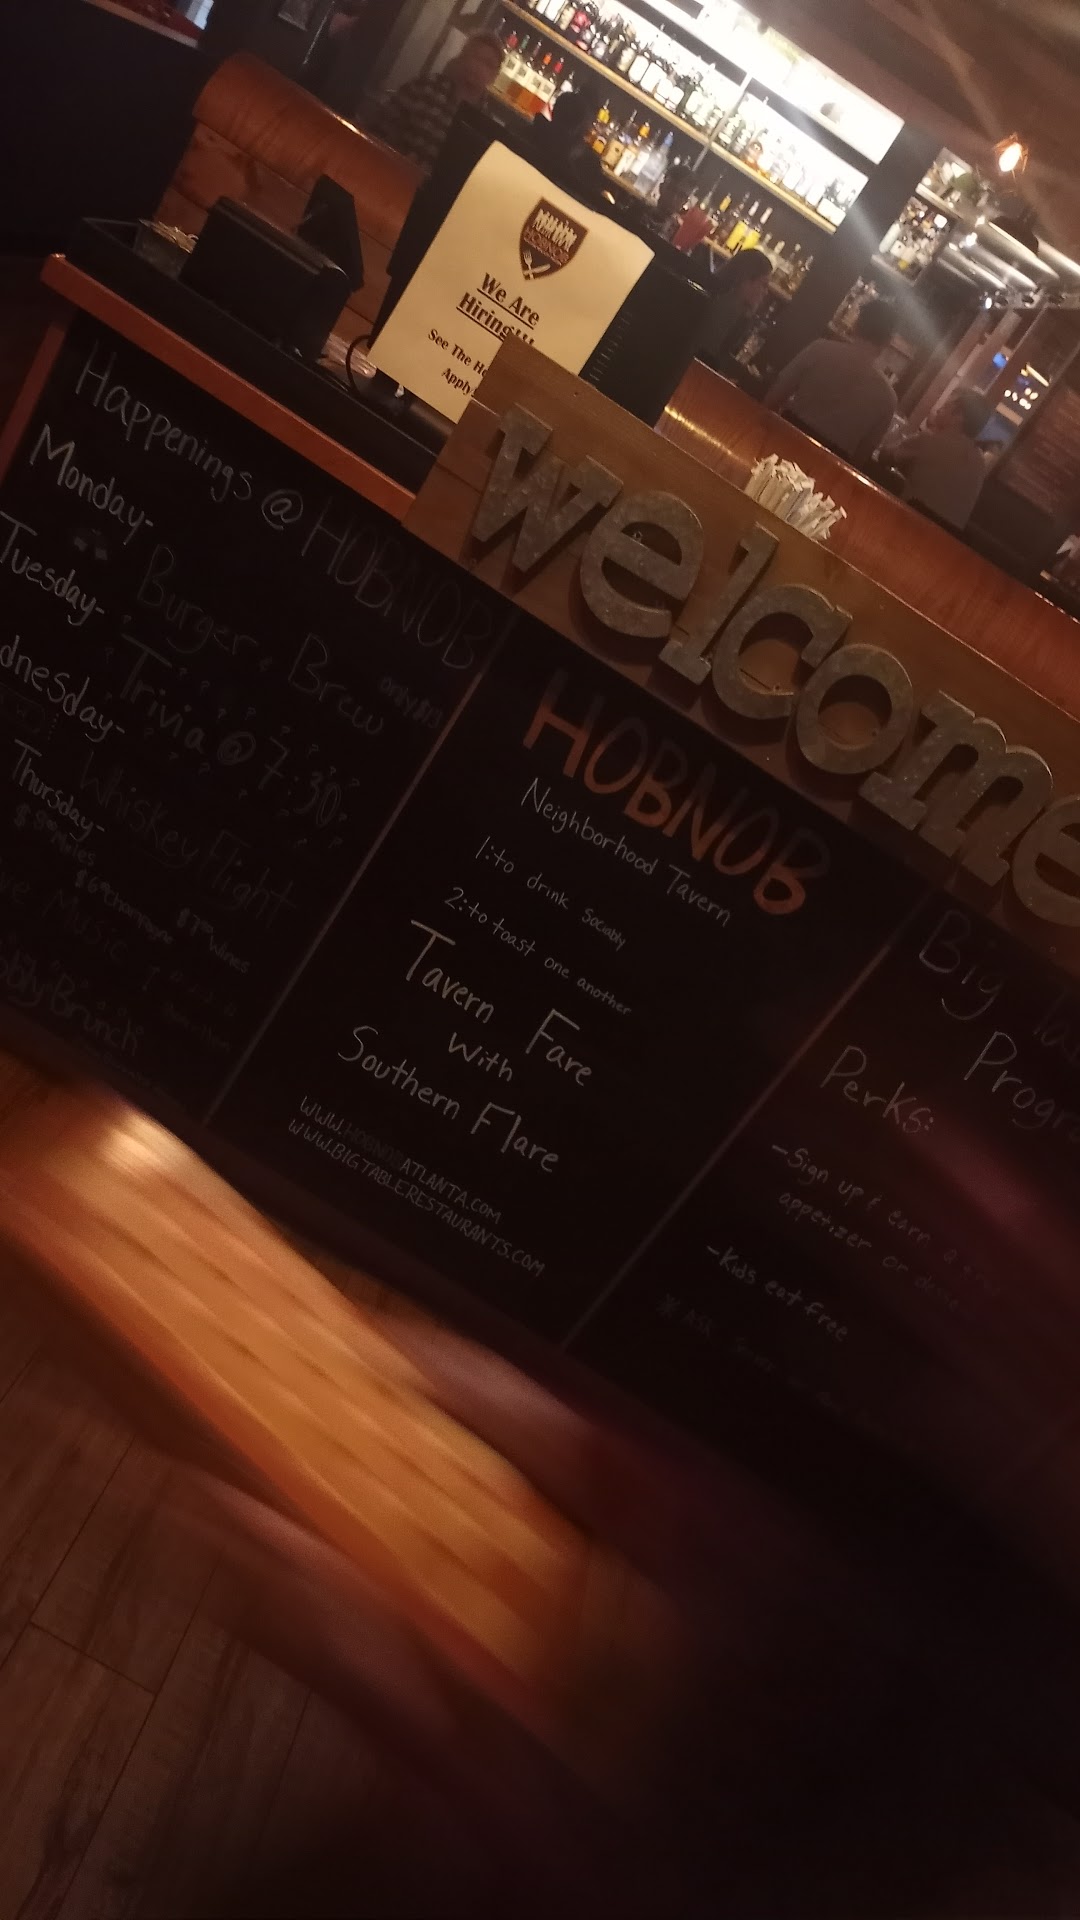 HOBNOB
We Are
Hiring!!!
See The
Apply
welcome
Happenings @ HOBNOB
Monday-
Burger & Brew
only $13
Tuesday-
Trivia @ 7:30
Whiskey Flight
Thursday-
Mules
Champagne
Wines
Music
Brunch
HOBNOB
Neighborhood Tavern
1: to drink sociably
2: to toast one another
Tavern Fare
with
Southern Flare
WWW.HOBNOBATLANTA.COM
WWW.BIGTABLERESTAURANTS.COM
Big
Perks:
- Sign up & earn a
appetizer or
- Kids eat free
* Ask